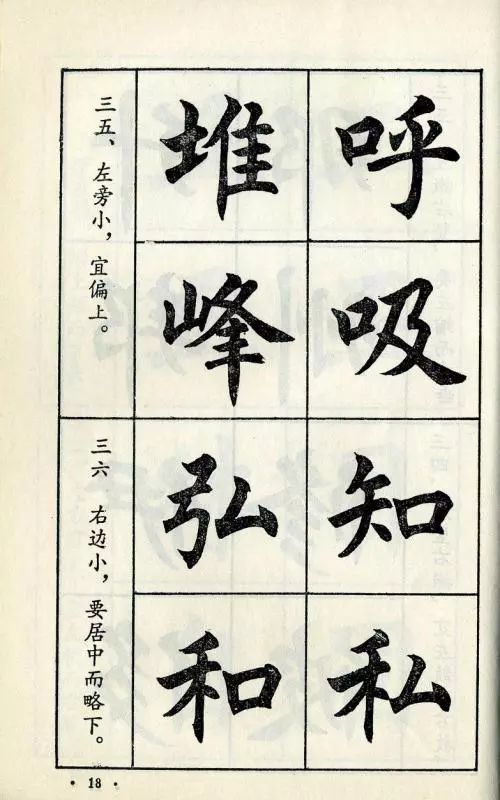 呼吸
堆峰
三五、左旁小，宜偏上。
知私
弘和
三六 右边小，要居中而略下。
· 18 ·